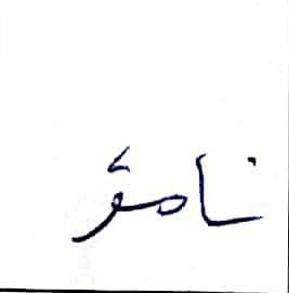 نامؤ